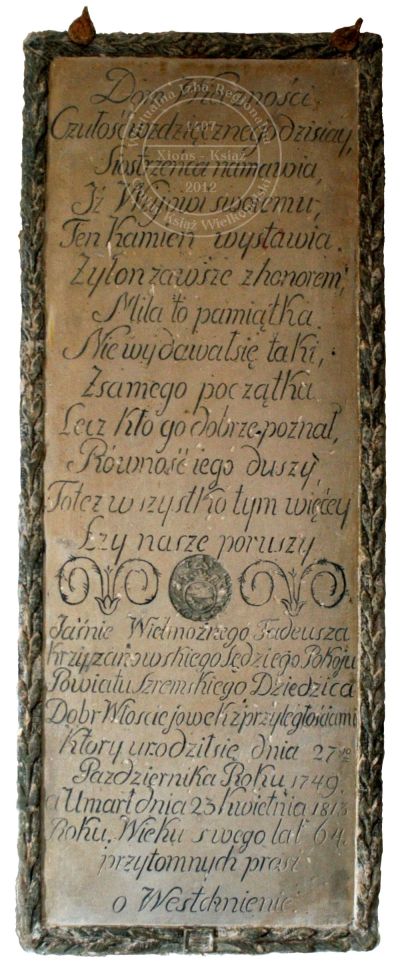 Dom Wieczności
Czułość wdzięcznego dzisiay,
Siostrzenca namawia,
Jż Wujowi swoiemu,
Ten kamień wystawia.
Żył on zawsze z honorem,
Miła to pamiątka
Nie wydawał się taki,
Z samego początku
Lecz kto go dobrze poznał,
Równość iego duszy,
Toteż wszystko tym więcey
Łzy nasze poruszy
Jaśnie Wielmożnego Tadeusza
Krzyżanowskiego Sędziego Pokoju
Powiatu Szremskiego Dziedzica
Dobr Włościejowek z przyległościami
który urodził się dnia 27go
Pazdziernika Roku 1749.
a Umarł dnia 23 kwietnia 1813
Roku. Wieku swego lat 64.
przytomnych prosz
o Westchnienie.
Wirtualna Izba Regionalna
1407
Xions - Książ
2012
Książ Wielkopolski